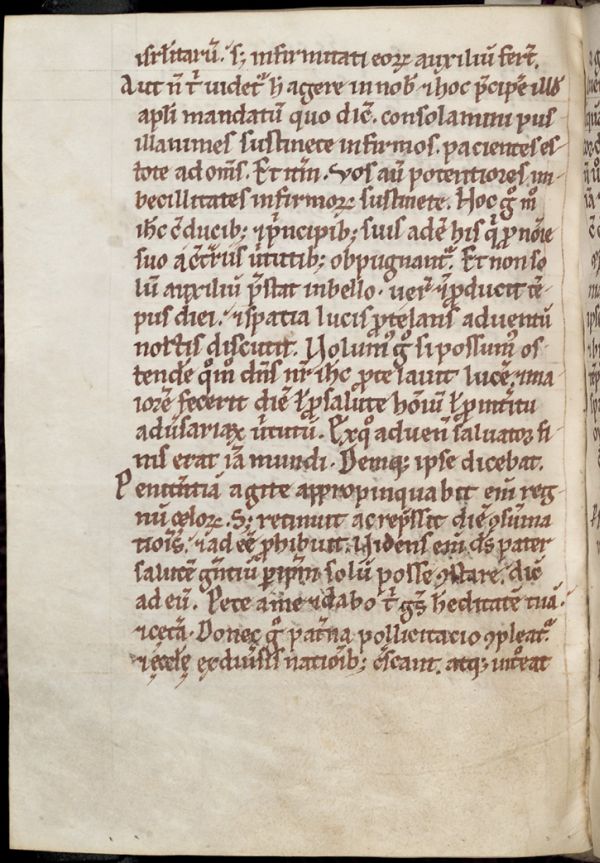 isrl̄itarū. s; infirmitati eorꝝ auxiliū fert̄.
Aut n̄ t̄ uidet᷑ h̄ agere in nob̄ ⁊ hoc p̄cipe illd̄
apl̄i mandatū quo dic̄. consolamini pus
illanimes sustinete infirmos. pacientes es-
tote ad om̄s. Et itm̄. Vos aū potentiores im-
becillitates infirmorꝝ sustinete. Hoc gͦ m̊
ih̄c
ducib; ⁊ p̄ncipib; suis adē his q̄ ꝓ nōie
suo
ūtutib; obpugnant᷑. Et non so
lū auxiliū p̄stat in bello.
ꝓducit tē-
pus diei. ⁊ spatia lucis ꝓtelans aduentū
noctis discutit. Volum᷒ gͦ si possum᷒ os-
tende qͦm dn̄s nr̄ ih̄c ꝓtelauit lucē. ⁊ ma
iorē fecerit diē ł ꝓ salute hōiū ł ꝓ int̄itu
adūsariaꝝ ūtutū. Ex qͦ aduen̄ saluator fi-
nis erat iā mundi. Deniqꝫ ipse dicebat.
Penitentiā agite appropinquabit eni᷒ reg-
nū celorꝝ. S; retinuit ac rep̄ssit diē ꝯsūma
tiōis. ⁊ adeē ꝓhibuit. Videns eni᷒ ds̄ pater
salutē gn̄tiū ꝑ ip̄m solū posse ꝯstare. dic̄
ad eū. Pete a me ⁊ dabo t̄ gn̄s hēditatē tuā.
⁊ cetā. Donec gͦ pat̄na pollicitacio ꝯpleat᷑.
⁊ ęcclę ex diūsis natiōib; c̄scant. atqꝫ int̄oeat